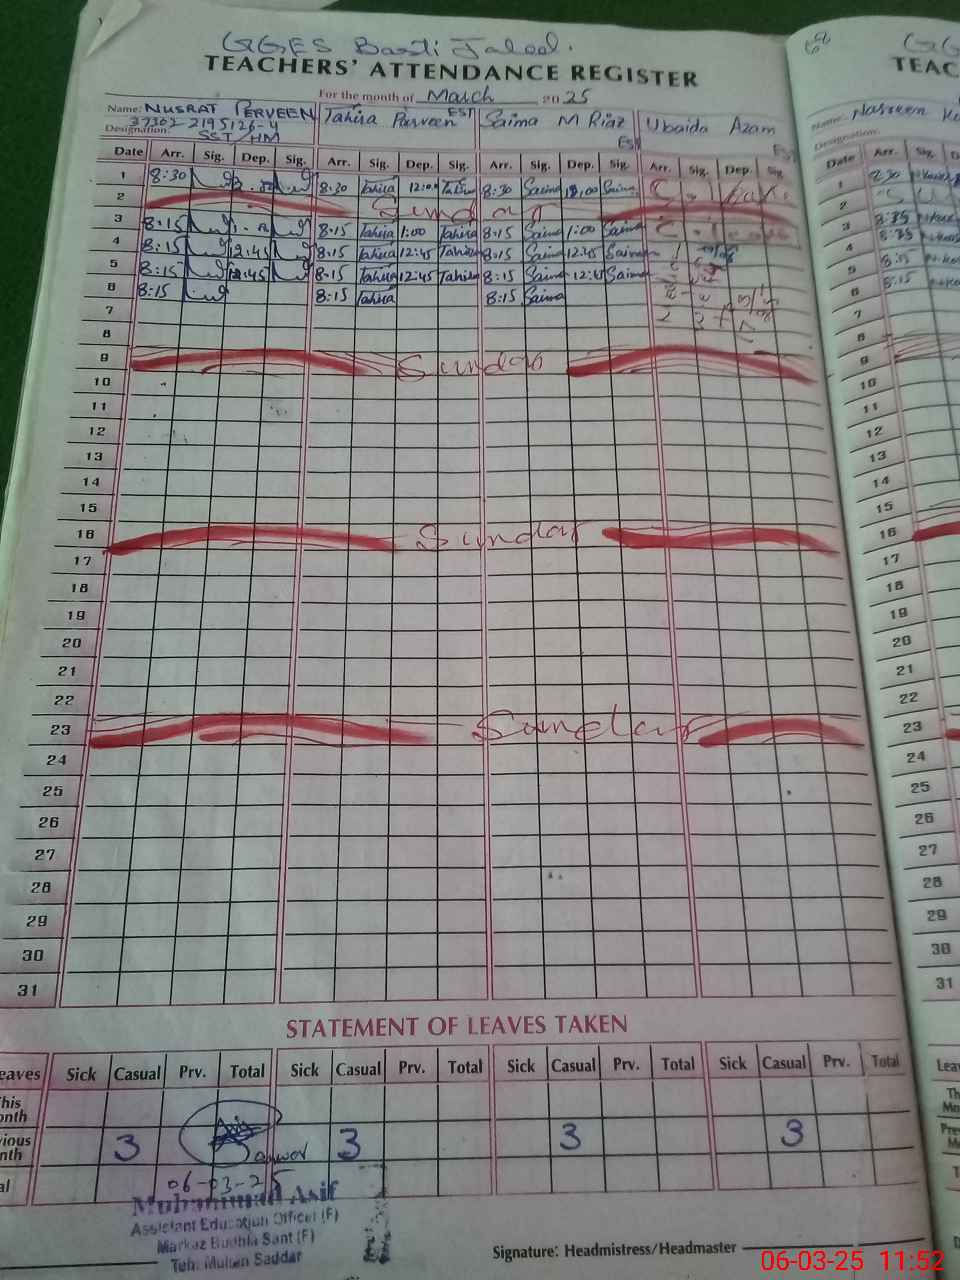 GGES Basti Jaleel.
TEACHERS' ATTENDANCE REGISTER
For the month of March 2025
Name: NUSRAT PERVEEN Tahira Parveen EST Saima M Riaz EST Ubaida Azam EST
37302-2195126-4
Designation: SST/HM
Date Arr. Sig. Dep. Sig. Arr. Sig. Dep. Sig. Arr. Sig. Dep. Sig. Arr. Sig. Dep. Sig.
1 8:30 8:30 Tahira 12:00 Tahira 8:30 Saima 12,00 Saima
2 Sunday
3 8:15 8:15 Tahira 1:00 Tahira 8:15 Saima 1:00 Saima
4 8:15 12:45 8:15 Tahira 12:45 Tahira 8:15 Saima 12:45 Saima
5 8:15 12:45 8:15 Tahira 12:45 Tahira 8:15 Saima 12:45 Saima
6 8:15 8:15 Tahira 8:15 Saima
7
8
9 Sunday
10
11
12
13
14
15
16 Sunday
17
18
19
20
21
22
23 Sunday
24
25
26
27
28
29
30
31
STATEMENT OF LEAVES TAKEN
eaves Sick Casual Prv. Total Sick Casual Prv. Total Sick Casual Prv. Total Sick Casual Prv. Total
his
onth
vious
nth 3 3 3 3
al
06-03-25
Muhammad Asif
Assistent Education Officer (F)
Markaz Budhla Sant (F)
Teh: Multan Saddar
Signature: Headmistress/Headmaster
69
GG
TEAC
Name: Nasreen
Designation:
Date Arr. Sig.
1 8:30
2
3 8:35
4 8:35
5 8:15
6 8:15
7
8
9
10
11
12
13
14
15
16
17
18
19
20
21
22
23
24
25
26
27
28
29
30
31
Leav
Th
Mo
Prev
M
T
06-03-25 11:52